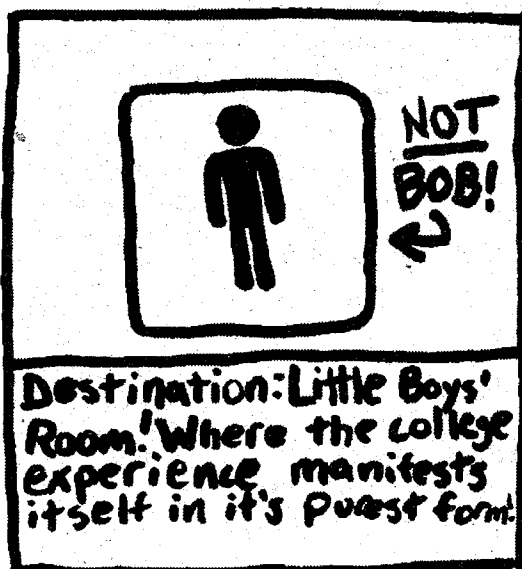 NOT
BOB!
Destination: Little Boys'
Room! Where the college
experience manifests
itself in it's purest form!